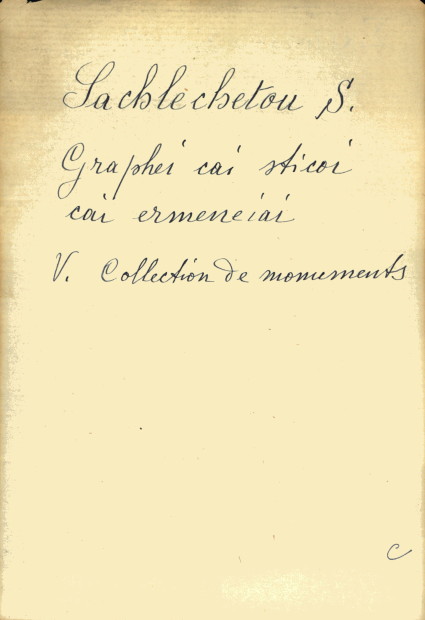 Sachlechetou S.
Graphei cai sticoi
cai ermeneiai
V. Collection de monuments
C